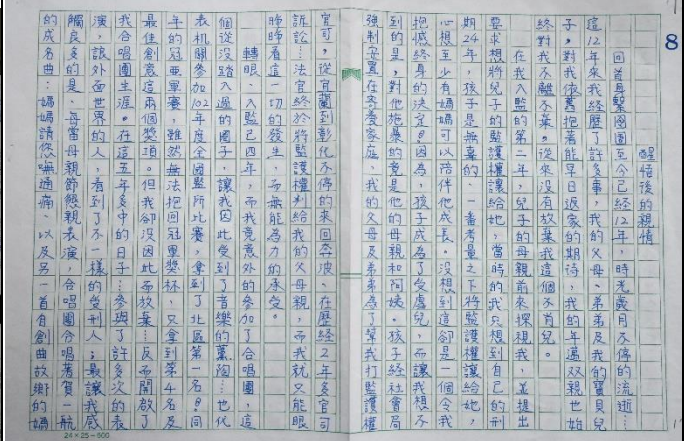 8
醒悟後的親情
回首身繫囹圄至今已經12年，時光歲月不停的流逝…
這12年來我經歷了許多事，我的父母、弟弟及我的寶貝兒
子，對我依舊抱著能早日返家的期待，我的年邁雙親也始
終對我不離不棄。從來沒有放棄我這個不肖兒。
在我入監的第二年，兒子的母親前來探視我，並提出
要求想將兒子的監護權讓給她，當時的我只想到自己的刑
期24年，孩子是無辜的，一番考量之下將監護權讓給她，
心想至少有媽媽可以陪伴他成長。沒想到這卻是一個令我
抱憾終身的決定！因為，孩子成為了受虐兒，而讓我想不
到的是，對他施暴的竟是他的母親和阿姨。孩子經社會局
強制安置在寄養家庭，我的父母及弟弟為了幫我打監護權
官司，從宜蘭到彰化不停的來回奔波，在歷經2年多官司
訴訟…法官終於將監護權判給我的父母親，而我就只能眼
睜睜看這一切的發生，而無能為力的承受。
轉眼，入監已四年，而我竟意外的參加了合唱團，這
個從沒踏入過的圈子，讓我因此受到了音樂的薰陶…也代
表機關參加102年度全國監所比賽，拿到了北區第一名！同
年的冠亞軍賽，雖然無法把回冠軍獎杯，只拿到第4名及
最佳創意這兩個獎項。但我卻沒因此而放棄…反而開啟了
我合唱團生涯。在這五年多中的日子…參與了許多次的表
演，讓外面世界的人，看到了不一樣的受刑人；最讓我感
觸良多的是，每當母親節懇親表演，合唱團合唱著賀一航
的成名曲：媽媽請您無通痛、以及另一首自創曲故鄉的媽
24×25=600